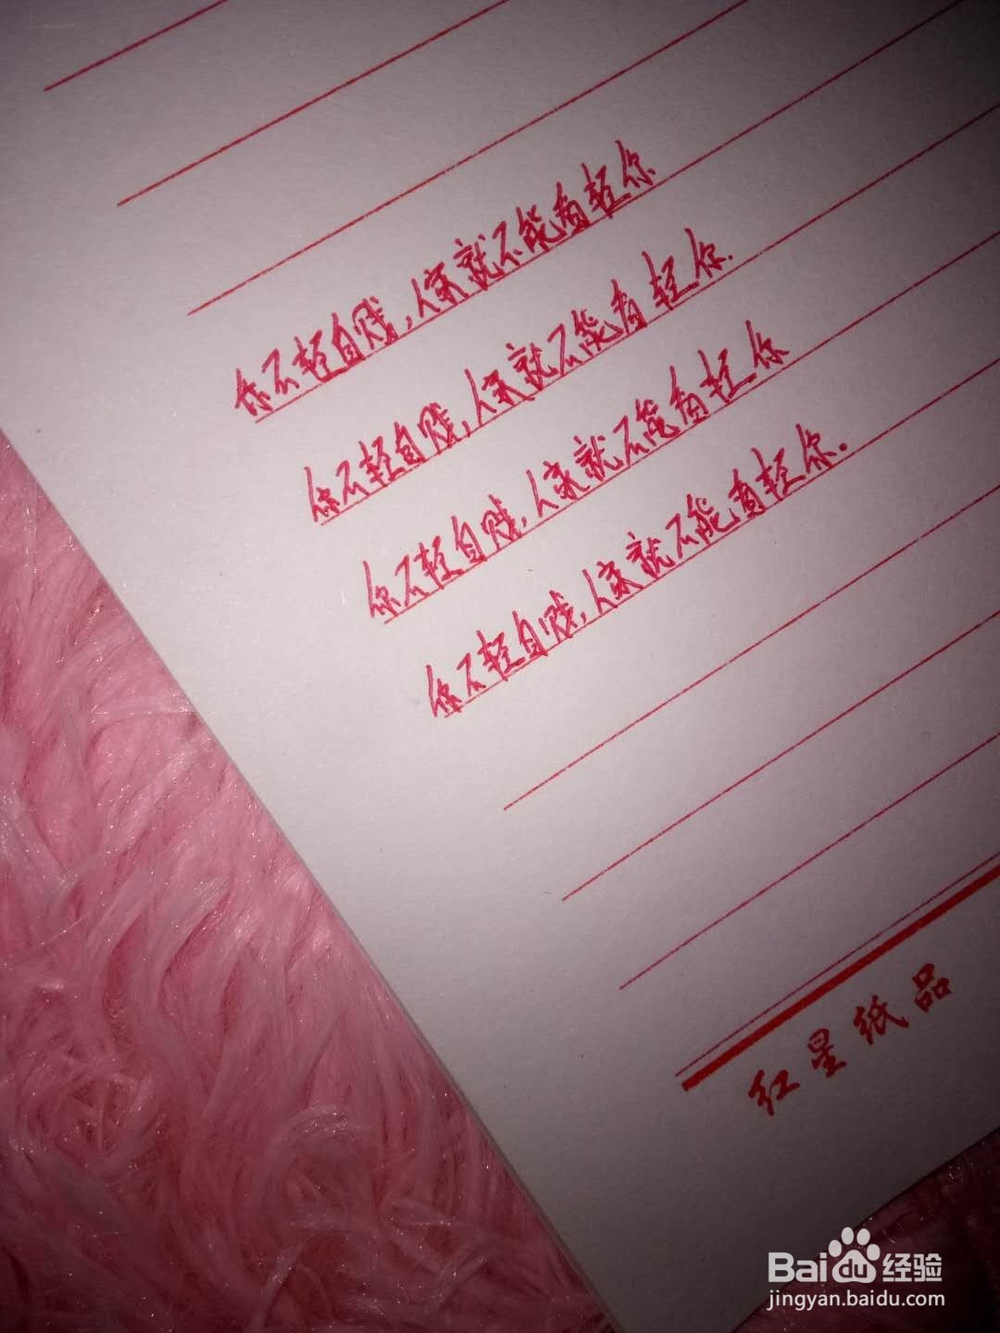 你不轻自贱，人家就不能看轻你
你不轻自贱，人家就不能看轻你.
你不轻自贱，人家就不能看轻你
你不轻自贱，人家就不能看轻你.
红星纸品
Baidu经验
jingyan.baidu.com